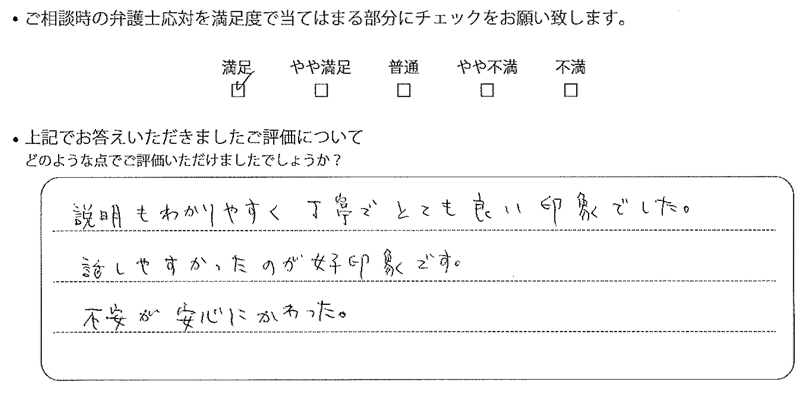 ・ご相談時の弁護士応対を満足度で当てはまる部分にチェックをお願い致します。
満足 やや満足 普通 やや不満 不満
☑ □ □ □ □
・上記でお答えいただきましたご評価について
どのような点でご評価いただけましたでしょうか？
説明もわかりやすく丁寧でとても良い印象でした。
話しやすかったのが好印象です。
不安が安心にかわった。